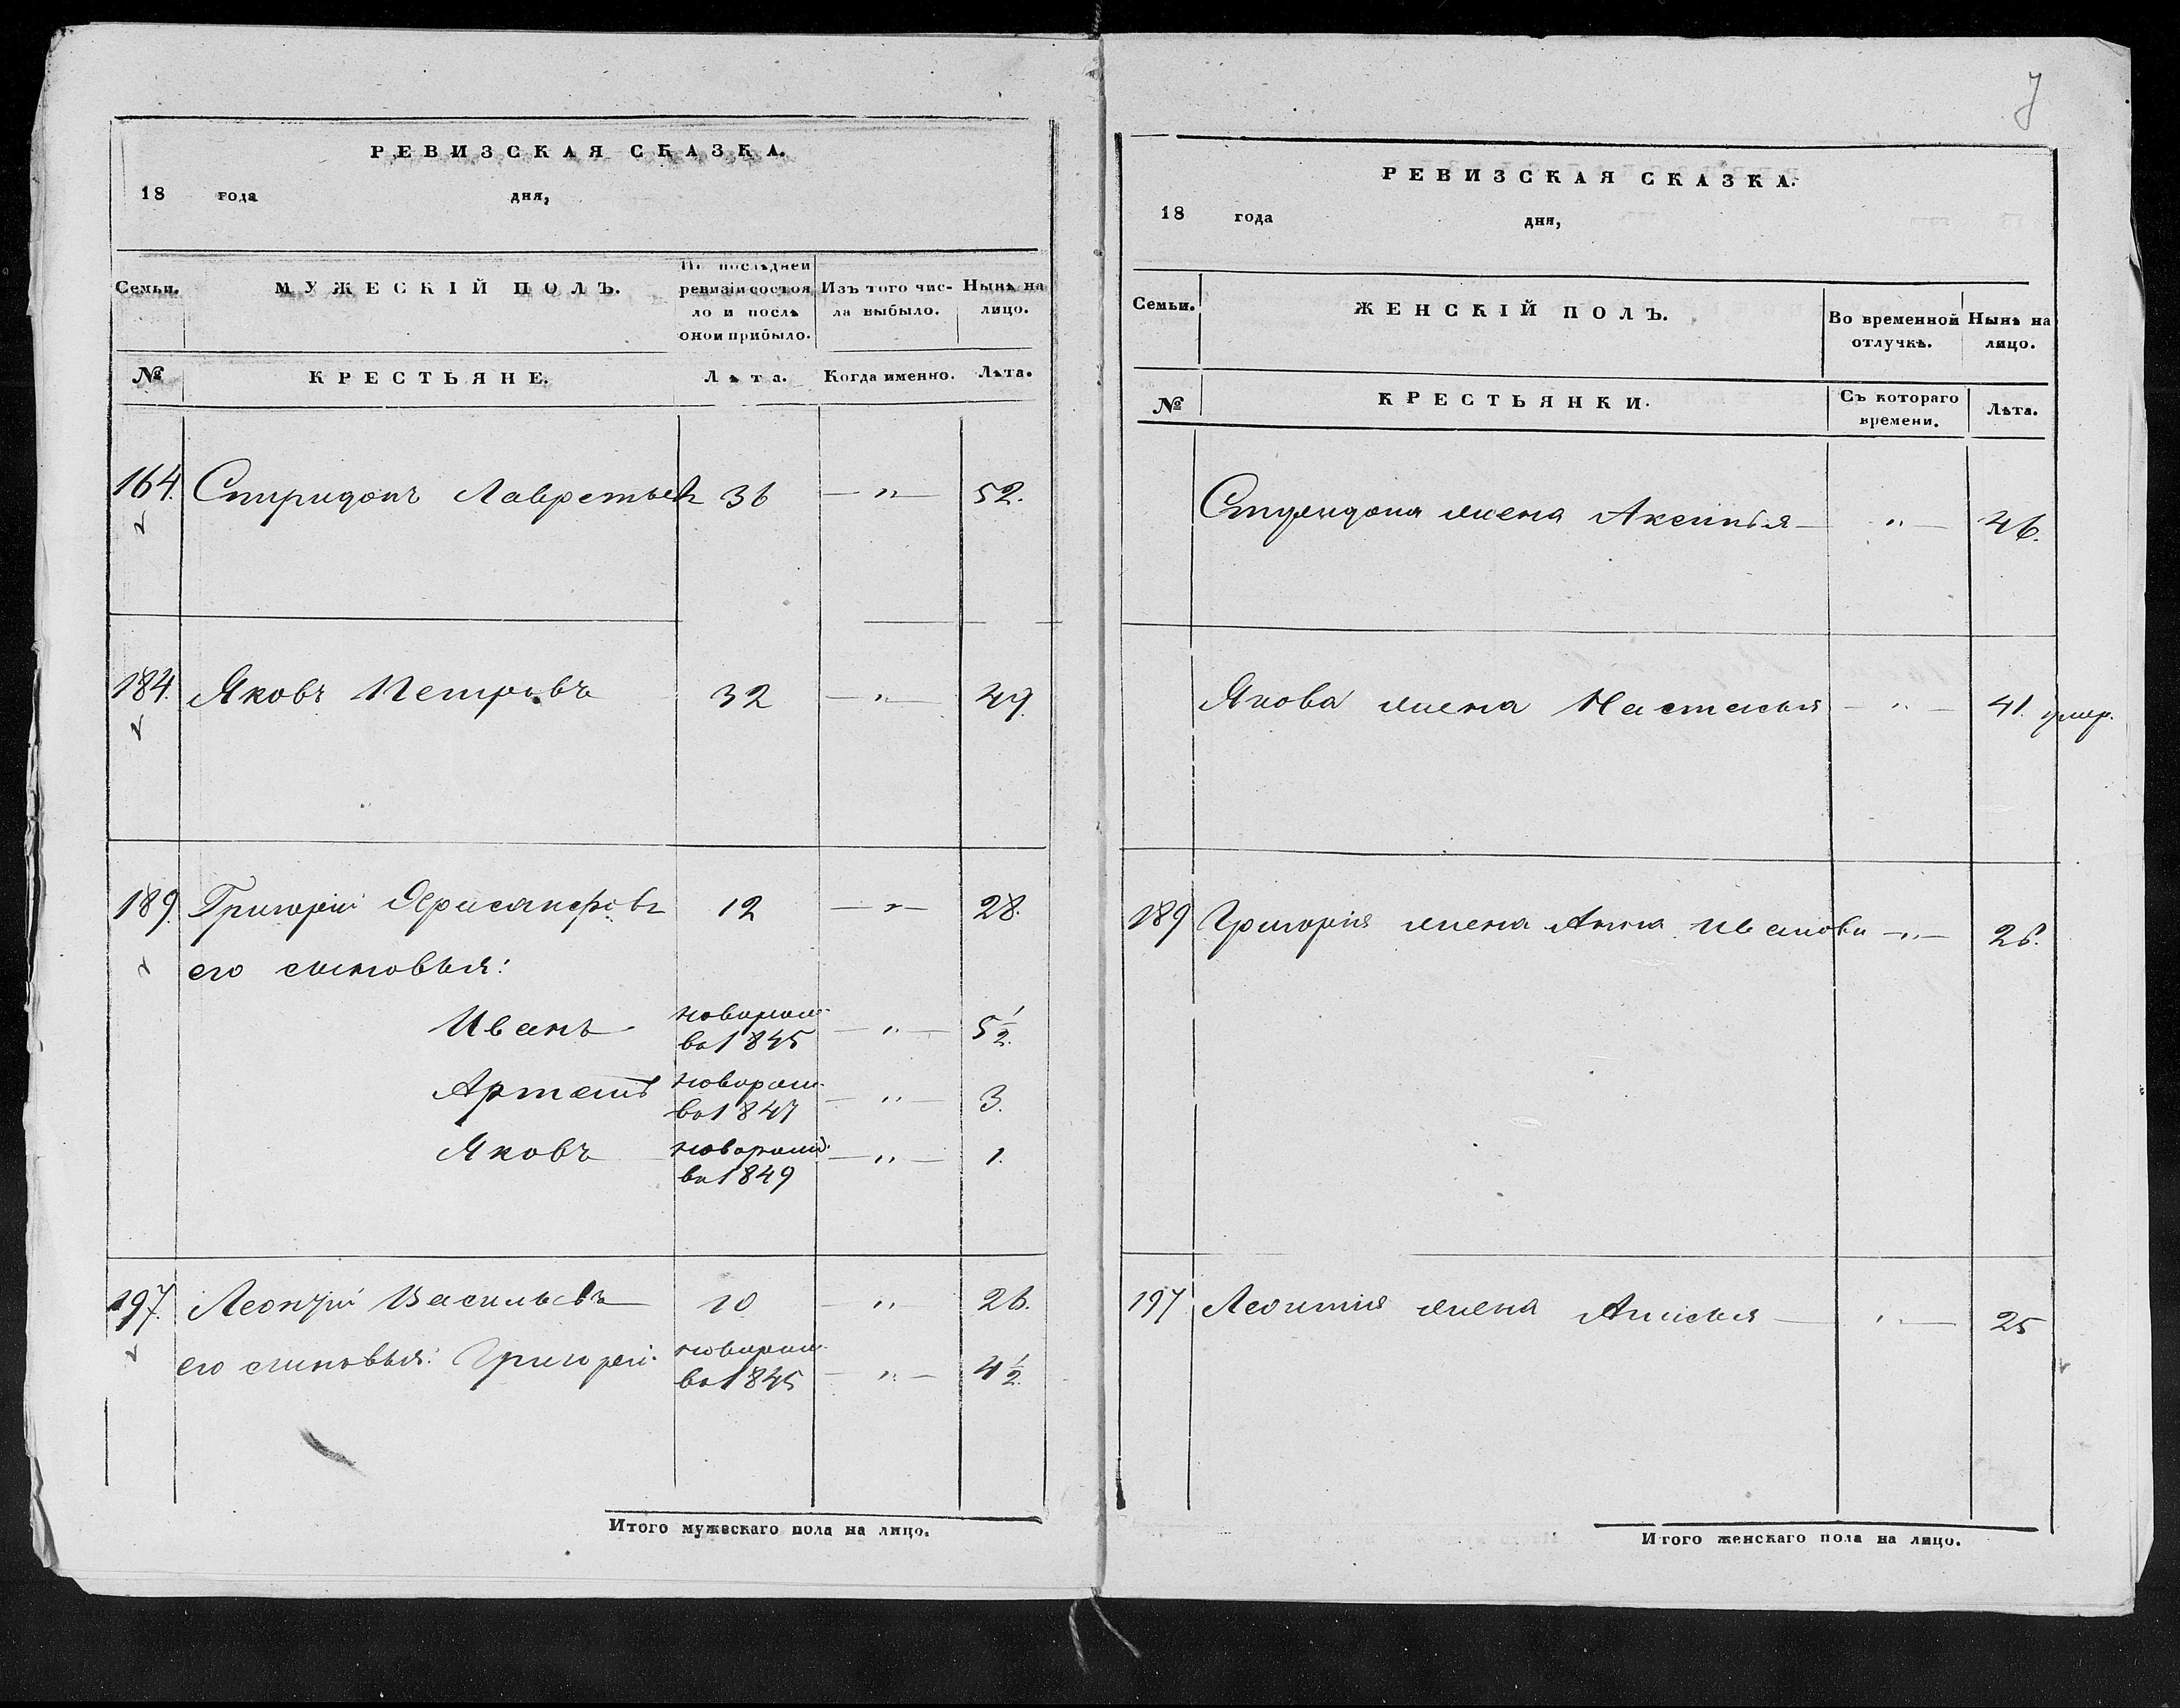 РЕВИЗСКАЯ СКАЗКА.
18 года дня,
Семьи.
МУЖЕСКІЙ ПОЛЪ.
По послѣдней
ревизіи состоя
ло и послѣ
оной прибыло.
Изъ того чис-
ла выбыло.
Нынѣ на
лицо.
№ КРЕСТЬЯНЕ. Лѣта. Когда именно. Лѣта.
164. Спиридонъ Лаврентьев 36 — " — 52.
184. Яковъ Петровъ 32 — " — 49
189. Григорій 12 — " — 28.
его сыновья:
Иванъ новорож.
во 1845 — " — 5 1/2.
Артемъ новорож.
во 1847 — " — 3.
Яковъ новорожд.
во 1849 — " — 1.
197. Леонтій Васильевъ 10 — " — 26.
его сыновья: Григорій новорож.
во 1845 — " — 4 1/2.
Итого мужескаго пола на лицо.
7
РЕВИЗСКАЯ СКАЗКА.
18 года дня,
Семьи.
ЖЕНСКІЙ ПОЛЪ.
Во временной
отлучкѣ.
Нынѣ на
лицо.
№ КРЕСТЬЯНКИ.
Съ котораго
времени.
Лѣта.
Спиридона жена Аксинья — " — 46.
Якова жена Настасья — " — 41. умер.
189 Григорія жена Анна Иванова — " — 26.
197 Леонтія жена Анисья — " — 25
Итого женскаго пола на лицо.